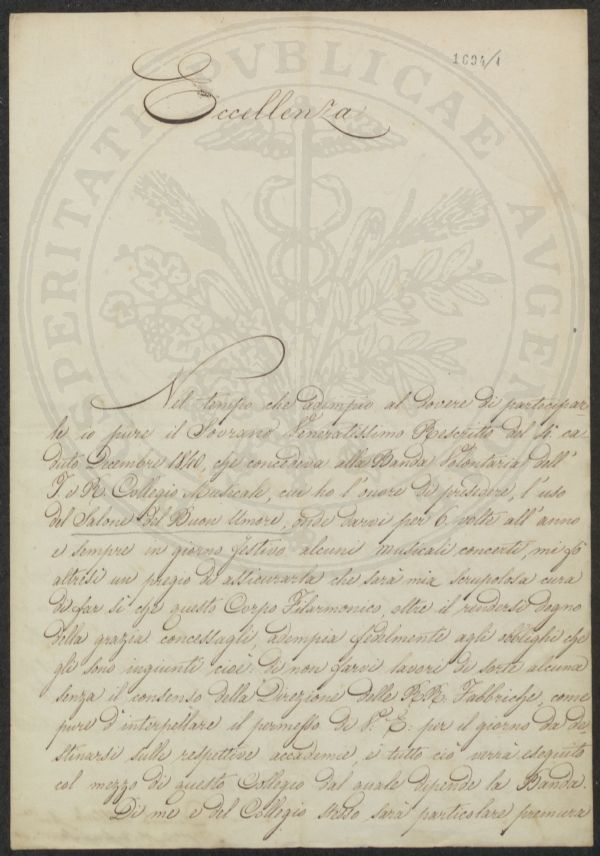 1694/1
Eccellenza
Nel tempo che adempio al dovere di partecipar
le io pure il Sovrano Veneratissimo Rescritto del 14. ca-
duto Decembre 1840, che concedeva alla Banda Volontaria dell'
I. e R. Collegio Musicale, cui ho l'onore di presedere, l'uso
del Salone del Buon Umore, onde darvi per 6. volte all'anno
e sempre in giorno festivo alcuni musicali concerti, mi fo
altresì un pregio di assicurarla che sarà mia scrupolosa cura
di far sì che questo Corpo Filarmonico, oltre il rendersi degno
della grazia concessagli, adempia fedelmente agli obblighi che
gli sono ingiunti, cioè: di non farvi lavori di sorte alcuna
senza il consenso della Direzione delle RR. Fabbriche, come
pure d'interpellare il permesso di V. E: per il giorno da de-
stinarsi sulle respettive accademie, e tutto ciò verrà eseguito
col mezzo di questo Collegio dal quale dipende la Banda.
Di me e del Collegio stesso sarà particolare premura
PROSPERITATI PVBLICAE AVGEN